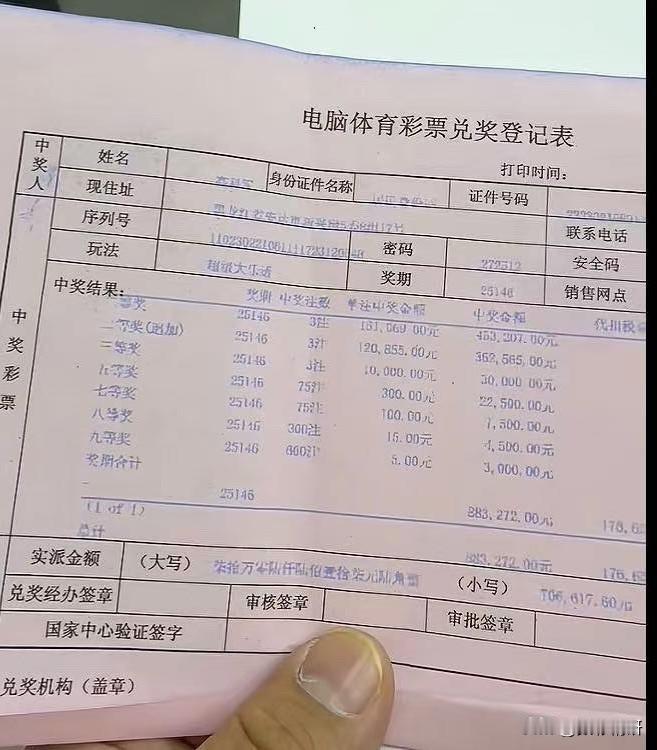 电脑体育彩票兑奖登记表
打印时间：
中奖人
姓名 身份证件名称 证件号码
现住址 联系电话
序列号 密码 272512 安全码
玩法 超级大乐透 奖期 25146 销售网点
中奖彩票
中奖结果： 奖期 中奖注数 单注中奖金额 中奖金额
等奖 25146 3注 151,069.00元 453,207.00元
二等奖(追加) 25146 3注 120,855.00元 362,565.00元
三等奖 25146 3注 10,000.00元 30,000.00元
五等奖 25146 75注 300.00元 22,500.00元
七等奖 25146 75注 100.00元 7,500.00元
八等奖 25146 300注 15.00元 4,500.00元
九等奖 25146 600注 5.00元 3,000.00元
奖期合计 25146 883,272.00元
(1 of 1)
总计 883,272.00元
实派金额 （大写） 柒拾万零陆仟陆佰壹拾柒元陆角整 （小写） 706,617.60元
兑奖经办签章 审核签章 审批签章
国家中心验证签字
兑奖机构（盖章）